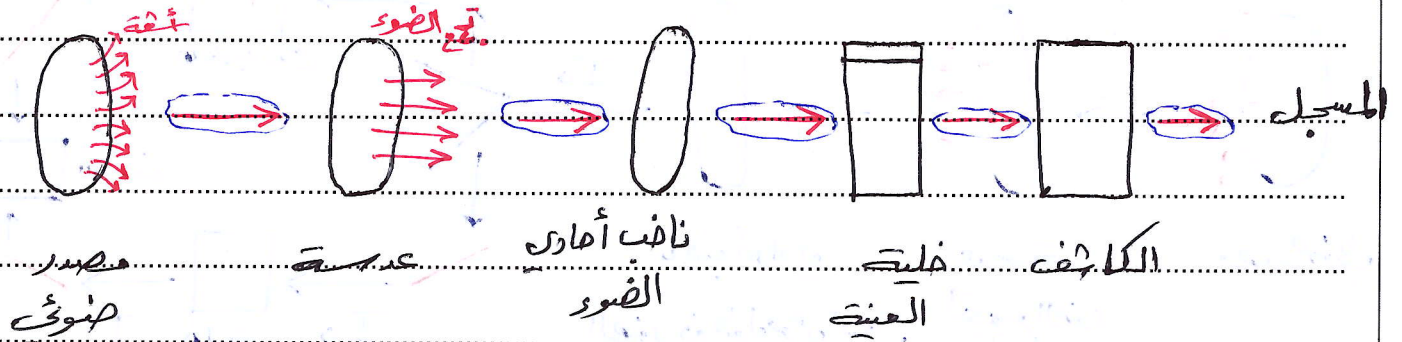 أشعة
تجمع الضوء
المسجل
مصدر
ضوئي
عدسة
ناخب أحادي
الضوء
خلية
العينة
الكاشف